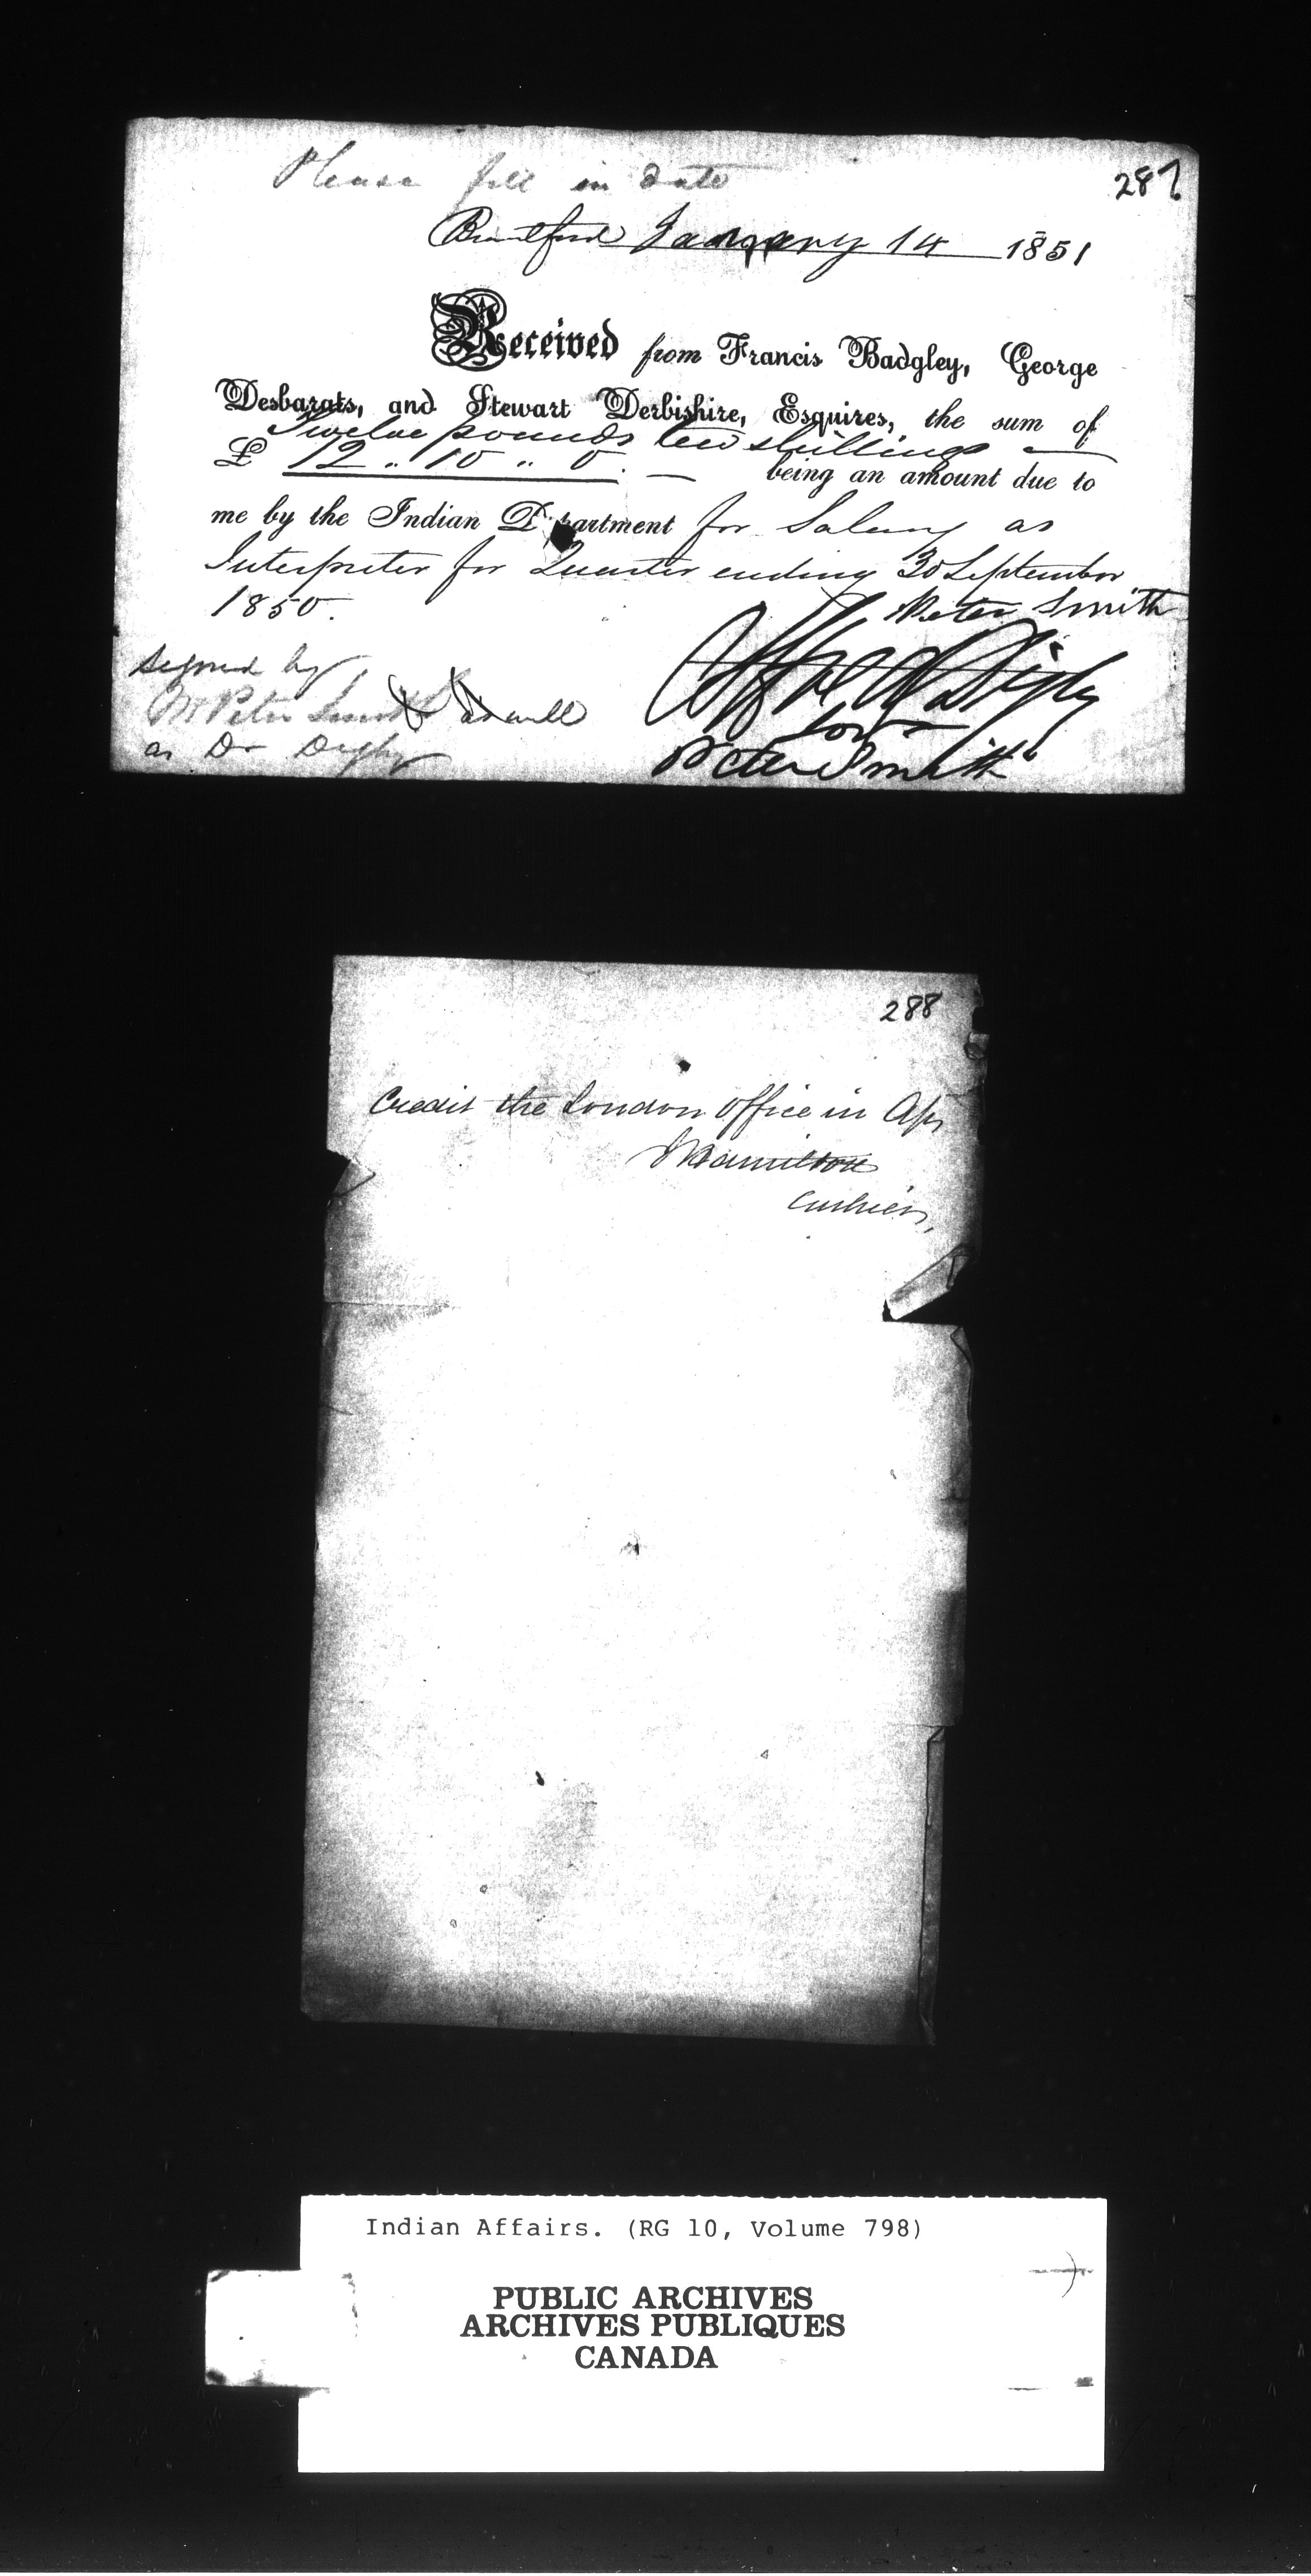 Please fill in date
287
Brantford January 14 1851
Received from Francis Badgley, George
Desbarats, and Stewart Derbishire, Esquires, the sum of
Twelve pounds ten shillings
£ 12 " 10 " 0. — being an amount due to
me by the Indian Department for Salary as
Interpreter for Quarter ending 30 September
1850.
Peter Smith
Alfred Digby
for
Peter Smith
signed by
Mr Peter Smith as well
as Dr Digby
288
Credit the London Office in
Hamilton
Cashier,
Indian Affairs. (RG 10, Volume 798)
PUBLIC ARCHIVES
ARCHIVES PUBLIQUES
CANADA